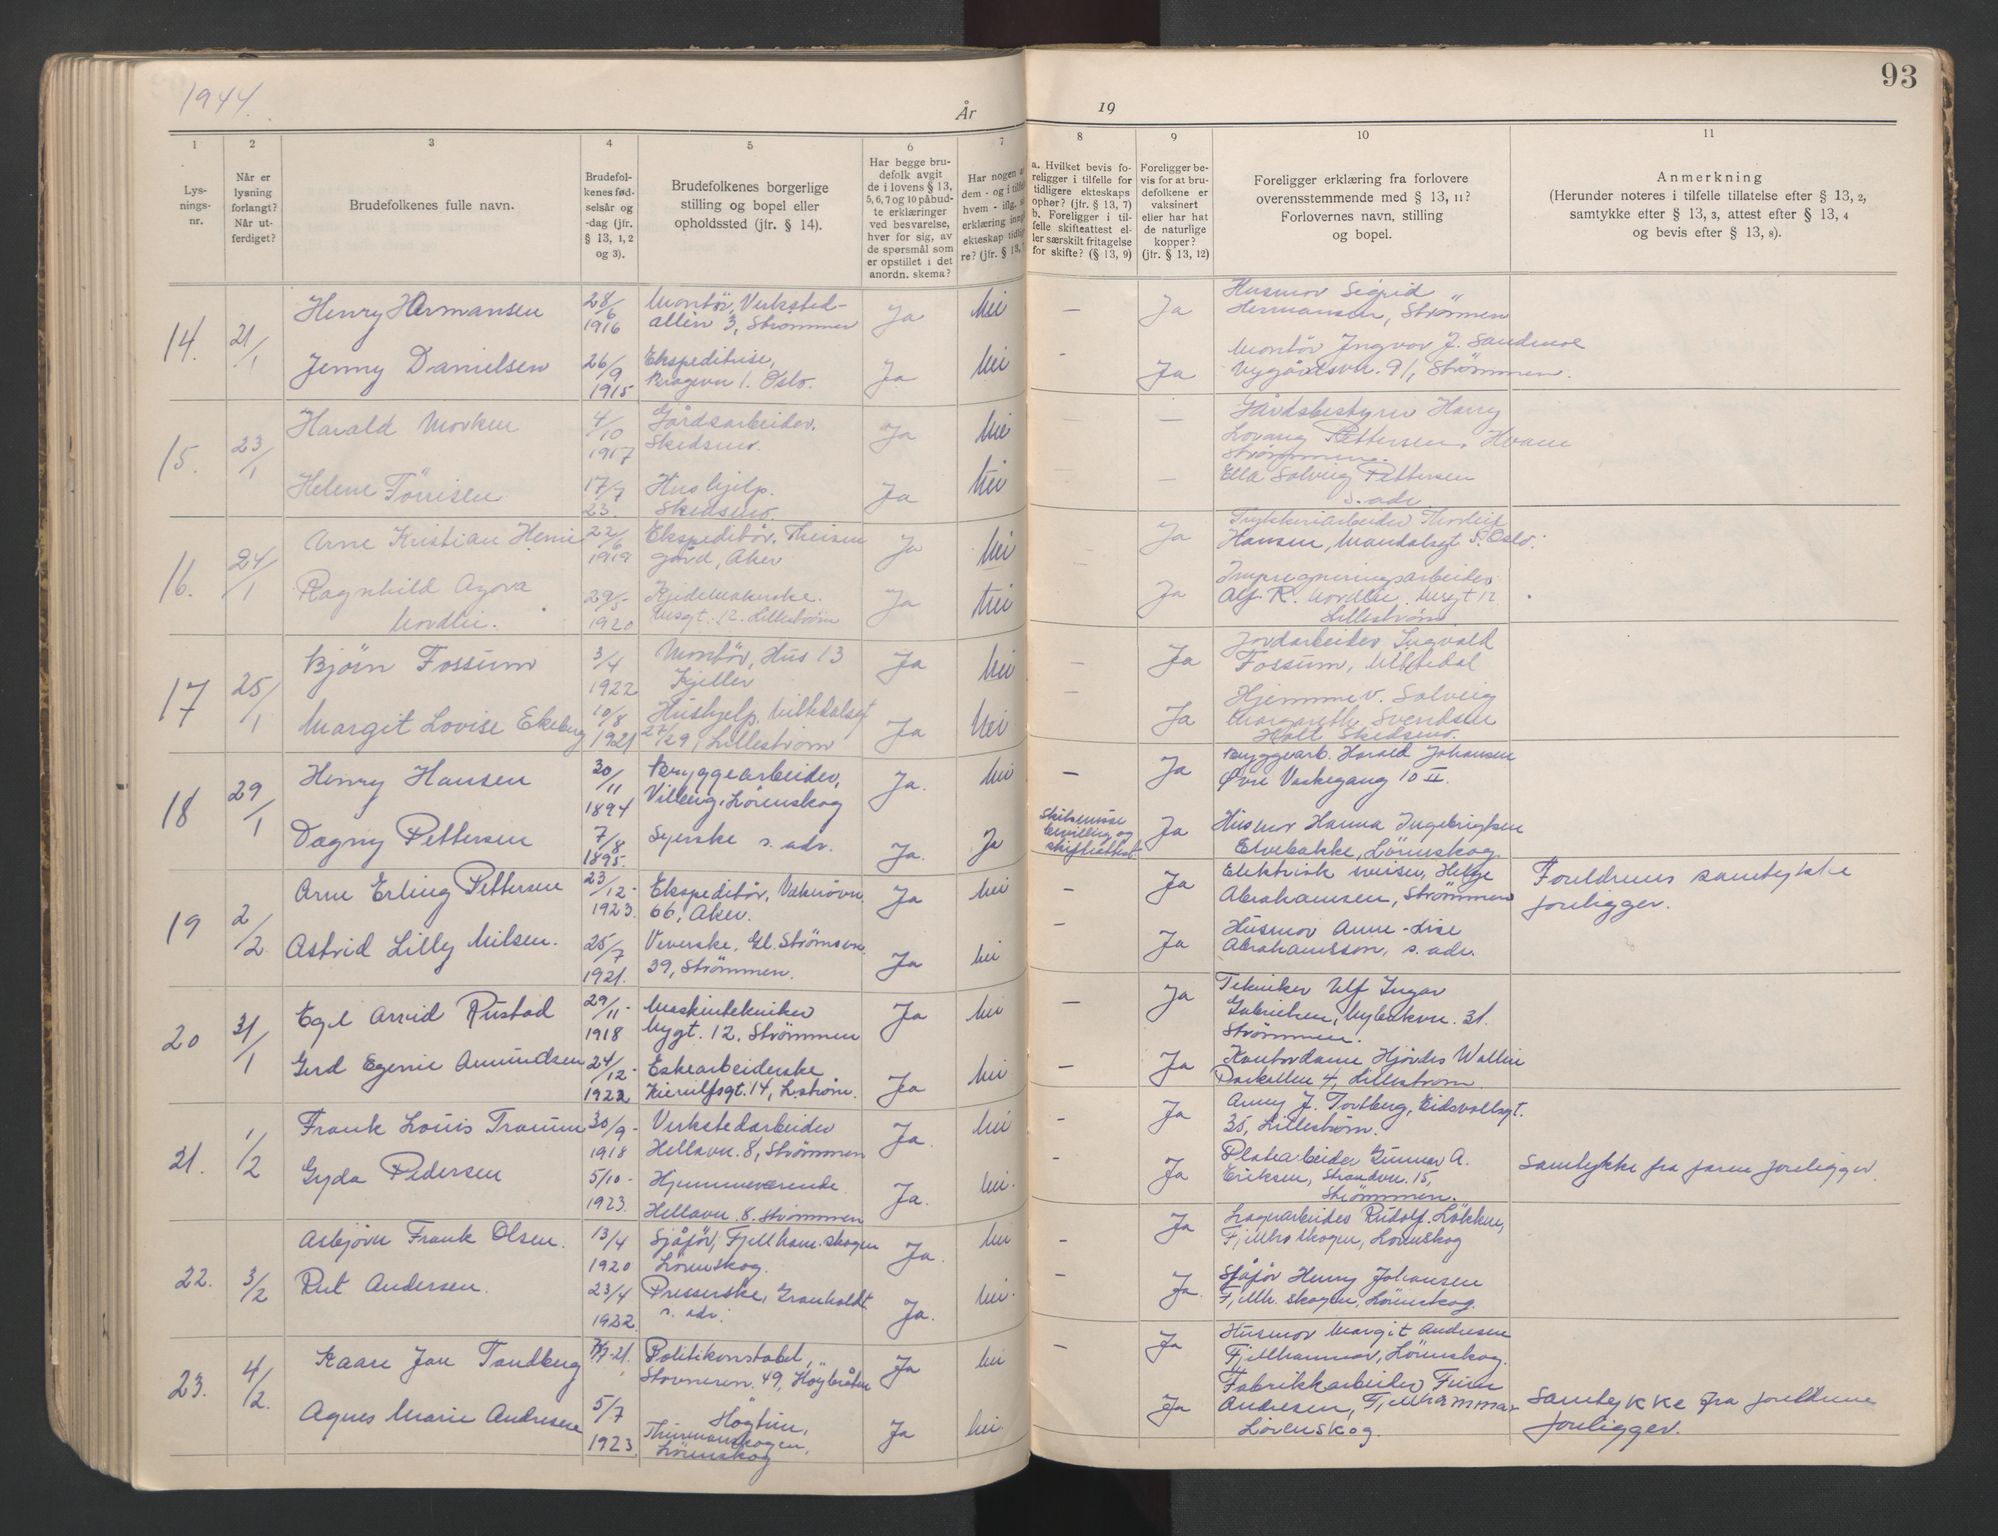 1944.
År
19
93
1
2
3
4
5
6
7
8
9
10
11
Lys-
nings-
nr.
Når er
lysning
forlangt?
Når ut-
ferdiget?
Brudefolkenes fulle navn.
Brudefol-
kenes fød-
selsår og
-dag (jfr.
§ 13, 1, 2
og 3).
Brudefolkenes borgerlige
stilling og bopel eller
opholdssted (jfr. § 14).
Har begge bru-
defolk avgit
de i lovens § 13,
5, 6, 7 og 10 påbud-
te erklæringer
ved besvarelse,
hver for sig, av
de spørsmål som
er opstillet i det
anordn. skema?
Har nogen a
dem - og i tilfel
hvem - iflg. s
erklæring inng
ekteskap tidlig
re? (jfr. § 13,
a. Hvilket bevis fo-
religger i tilfelle for
tidligere ekteskaps
ophør? (jfr. § 13, 7)
b. Foreligger i til-
felle skifteattest el-
ler særskilt fritagelse
for skifte? (§ 13, 9)
Foreligger be-
vis for at bru-
defolkene er
vaksinert
eller har hat
de naturlige
kopper?
(jfr. § 13, 12)
Foreligger erklæring fra forlovere
overensstemmende med § 13, 11?
Forlovernes navn, stilling
og bopel.
Anmerkning
(Herunder noteres i tilfelle tillatelse efter § 13, 2,
samtykke efter § 13, 3, attest efter § 13, 4
og bevis efter § 13, 8).
14. 21/1
Henry Hermansen 28/6 1916 Montör, Verksted-
allèn 3, Strømmen Ja Nei — Ja
Husmor Sigrid
Hermansen, Strömmen
Jenny Danielsen 26/9 1915 Ekspeditrise,
Bragevn 1. Oslo. Ja Nei - Ja
Montör Ingvar J. Sandmoe
Nygårdsvn. 91, Strömmen.
15. 23/1
Harald Morken 4/10 1917 Gårdsarbeider,
Skedsmo. Ja Nei — —
Gårdsbestyrer Harry
Lovang Pettersen, Hvam
Strömmen.
Helene Törrisen 17/7 23. Hushjelp.
Skedsmo. Ja Nei — —
Ella Solveig Pettersen
s. adr
16. 24/1
Arne Kristian Henie 22/6 1919 Ekspeditör, Theisen
gård, Aker Ja Nei — Ja
Trykkeriarbeider Thorleif
Hansen, Mandalsgt 5. Oslo.
Ragnhild Agova
Nordlie. 29/5 1920 Kjolemakerske.
Musgt. 12. Lilleström Ja Nei — Ja
Impregneringsarbeider
Alf R. Nordlie. Musgt 12
Lilleström
17 25/1
Björn Fossum 3/4 1922 Montör, Hus 13
Kjeller Ja Nei — Ja
Jordarbeider Ingvald
Fossum, Nittedal
Margit Lovise Ekeberg 10/8 1921 Hushjelp, Nitteldalsgt
27/29, Lilleström Ja Nei — Ja
Hjemmev. Solveig
Margareth Svendsen
Holt Skedsmo.
18 29/1
Henry Hansen 30/11 1894 Bryggearbeider,
Villeng, Lörenskog Ja. Nei — Ja
Byggearb. Harald Johansen
Øvre Vaskegang 10 II.
Dagny Pettersen 7/8 1895. Syerske s. adr. Ja. Ja
Skilsmisse
bevilling og
skifteattest. Ja
Husmor Hanna Ingebrigtsen
Elvebakke, Lörenskog.
19 2/2
Arne Erling Pettersen 23/12- 1923. Ekspeditör,
66, Aker. Ja Nei — Ja
Elektrisk sveiser, Helge
Abrahamsen, Strömmen
Foreldrenes samtykke
foreligger.
Astrid Lilly Nilsen. 25/7 1921. Veverske, Gl. Strömsvn
39, Strömmen. Ja Nei — Ja
Husmor Anne-Lise
Abrahamsson, s. adr.
20 31/1
Egil Arvid Rustad 29/11- 1918 Maskintekniker
Nygt. 12, Strömmen Ja Nei — Ja
Tekniker Ulf Ingar
Gabrielsen, Nybakvn. 31.
Strömmen.
Gerd Egenie Amundsen 24/12- 1922 Eskearbeiderske
Kierulfsgt. 14, L.ström. Ja Nei — Ja
Kontordame Hjördis Wallin
Parkalleen 4, Lilleström
21. 1/2
Frank Louis Traum 30/9- 1918 Verkstedarbeider
Hellavn. 8, Strömmen Ja. Nei — Ja
Anny J. Tortberg, Eidsvollsgt.
35, Lilleström.
Gyda Pedersen 5/10- 1923. Hjemmeværende
Hellavn. 8. Strömmen Ja. Nei. - Ja
Platearbeider Gunnar A.
Eriksen, Strandvn. 15,
Strömmen.
Samtykke fra faren foreligger.
22. 3/2
Asbjörn Frank Olsen. 13/4 1920 Sjåför, Fjellham. skogen
Lörenskog. Ja. Nei — Ja
Lagerarbeider Rudolf Lökken,
Fjellh. skogen, Lörenskog
Rut Andersen. 23/4 1922 Presserske, Granholdt
s. adr. Ja. Nei. - Ja.
Sjåför Henry Johansen
Fjellh. skogen, Lörenskog.
23. 4/2.
Kaare Jan Tandberg /7-21. Politikonstabel,
Stovnervn. 49, Höybråten Ja Nei - Ja
Husmor Margit Andresen
Fjellhammar, Lörenskog.
Agnes Marie Andresen 5/7 1923. Högtun,
Thurmanskogen,
Lörenskog Ja Nei. - Ja
Fabrikkarbeider Finn
Andresen, Fjellhammar
Lörenskog.
Samtykke fra foreldrene
foreligger.